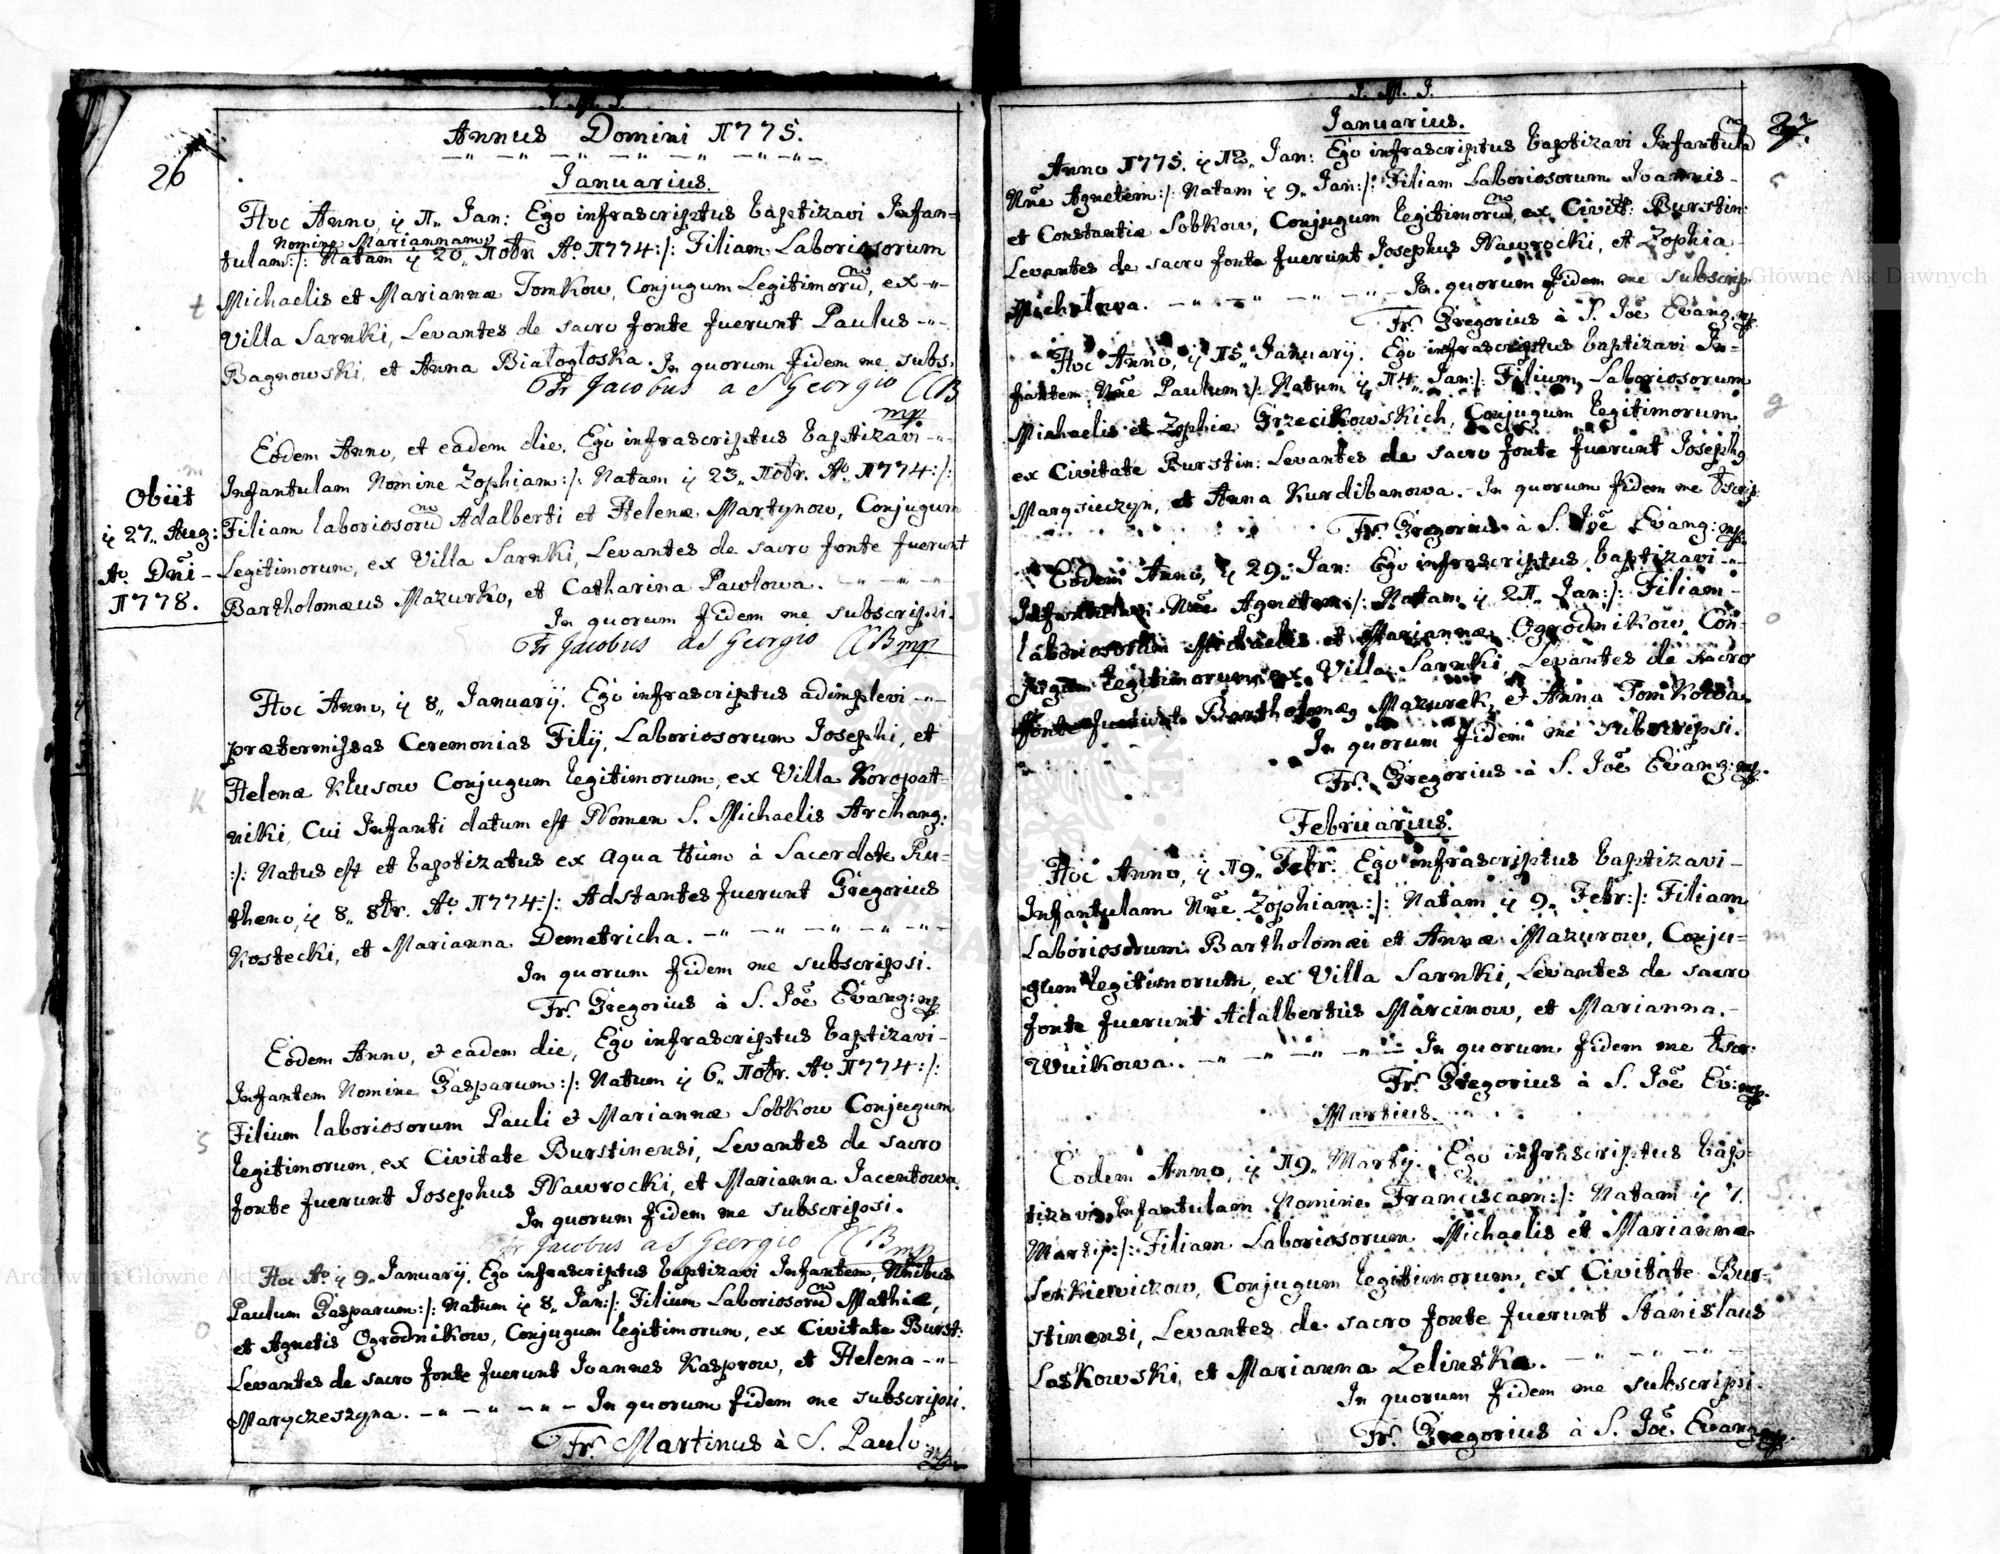 J. M. J.
Annus Domini 1775.
26
Januarius.
Hoc Anno, ÿ 1„ Jan: Ego infrascriptus baptizavi Infan=
Nomine Mariannam
tulam :/: Natam ÿ 20„ Nobr. Aº 1774 :/: Filiam Laboriosorum
Michaelis et Mariannæ Tomkow, Conjugum Legitimorũ, ex
t
Villa Sarnki, Levantes de sacro fonte fuerunt Paulus
Bagnowski, et Anna Białogłoska. In quorum fidem me subs.
Fr Jacobus a S Georgio CCB
mp
Eodem Anno, et eadem die, Ego infrascriptus baptizavi
m
Infantulam Nomine Zophiam :/: Natam ÿ 23„ Nobr. Aº 1774 :/:
Obiit
ÿ 27„ Aug:
Aº Dñi
1778.
Filiam laboriosorũ Adalberti et Helenæ Martynow, Conjugum
Legitimorum, ex Villa Sarnki, Levantes de sacro fonte fuerunt
Bartholomæus Mazurko, et Catharina Pawłowa.
In quorum fidem me subscripsi.
Fr Jacobus a S Georgio CCB mp
Hoc Anno, ÿ 8„ Januarÿ. Ego infrascriptus adimplevi
prætermissas Ceremonias Filÿ, Laboriosorum Josephi, et
Helenæ Klusow Conjugum legitimorum, ex Villa Koropat=
k
niki, Cui Infanti datum est Nomen S. Michaelis Archang:
:/: Natus est et baptizatus ex aqua ttũm à Sacerdote Ru=
theno, ÿ 8„ 8br. Aº 1774 :/: Adstantes fuerunt Gregorius
Kostecki, et Marianna Demetricha.
In quorum fidem me subscripsi.
Fr. Gregorius à S. Joẽ Evang: mp
Eodem Anno, et eadem die, Ego infrascriptus baptizavi
Infantem Nomine Gasparum :/: Natum ÿ 6„ Nobr. Aº 1774 :/:
Filium laboriosorum Pauli et Mariannæ Sobkow Conjugum
s
legitimorum, ex Civitate Burstinensi, Levantes de sacro
fonte fuerunt Josephus Nawrocki, et Marianna Jacentowa.
In quorum fidem me subscripsi.
Fr Jacobus a S Georgio CCB mp
Hoc Aº ÿ 9„ Januarÿ. Ego infrascriptus baptizavi Infantem, Nnibus
Paulum Gasparum :/: Natum ÿ 8„ Jan :/: Filium Laboriosorũ Mathiæ,
o
et Agnetis Ogrodnikow, Conjugum legitimorum, ex Civitate Burst:
Levantes de sacro fonte fuerunt Joannes Kasprow, et Helena
Maryczeszyna. In quorum fidem me subscripsi.
Fr. Martinus à S. Paulo mp
J. M. J.
Januarius.
27.
Anno 1775. ÿ 12„ Jan: Ego infrascriptus baptizavi Infantulã
Nñe Agnetem :/: Natam ÿ 9„ Jan :/: Filiam Laboriosorum Joannis
s
et Constantiæ Sobkow, Conjugum legitimorũ, ex Civitt: Burstin:
Levantes de sacro fonte fuerunt Josephus Nawrocki, et Zophia
Michałowa. In quorum fidem me subscrip.
Fr. Gregorius à S. Joẽ Evang. mp.
Hoc Anno, ÿ 15„ Januarÿ. Ego infrascriptus baptizavi In=
fantem Nñe Paulum :/: Natum ÿ 14„ Jan :/: Filium, Laboriosorum
g
Michaelis et Zophiæ Grzecikowskich, Conjugum legitimorum
ex Civitate Burstin: Levantes de sacro fonte fuerunt Josephg
Marysiczyn, et Anna Kurdibanowa. In quorum fidem me
Fr. Gregorius à S. Joẽ Evang: mp.
Eodem Anno, ÿ 29„ Jan: Ego infrascriptus baptizavi
Nñe Agnetem :/: Natam ÿ 21„ Jan :/: Filiam
o
laboriosorum Michaelis et Mariannæ Ogrodnikow Con=
jugum legitimorum, ex Villa Sarnki, Levantes de sacro
fonte fuerunt Bartholomæg Mazurek, et Anna Tomkowa.
In quorum fidem me subscripsi.
Fr. Gregorius à S. Joẽ Evang: mp.
Februarius.
Hoc Anno, ÿ 19„ Febr: Ego infrascriptus baptizavi
Infantulam Nñe Zophiam :/: Natam ÿ 9„ Febr :/: Filiam
m
Laboriosorum Bartholomæi et Annæ Mazurow, Conju=
gum legitimorum, ex Villa Sarnki, Levantes de sacro
fonte fuerunt Adalbertus Marcinow, et Marianna
Wuikowa. In quorum fidem me
Fr. Gregorius à S. Joẽ Ev: mp.
Martius.
Eodem Anno, ÿ 19„ Martÿ. Ego infrascriptus bap=
tizavi, Infantulam Nomine Franciscam :/: Natam ÿ 7.
S
Martÿ :/: Filiam Laboriosorum Michaelis et Mariannæ
Senkiewiczow, Conjugum legitimorum, ex Civitate Bur=
stinensi, Levantes de sacro fonte fuerunt Stanislaus
Laskowski, et Marianna Zelinska.
In quorum fidem me subscripsi.
Fr. Gregorius à S. Joẽ Evang mp.
Archiwum Główne Akt Dawnych
Archiwum Główne Akt